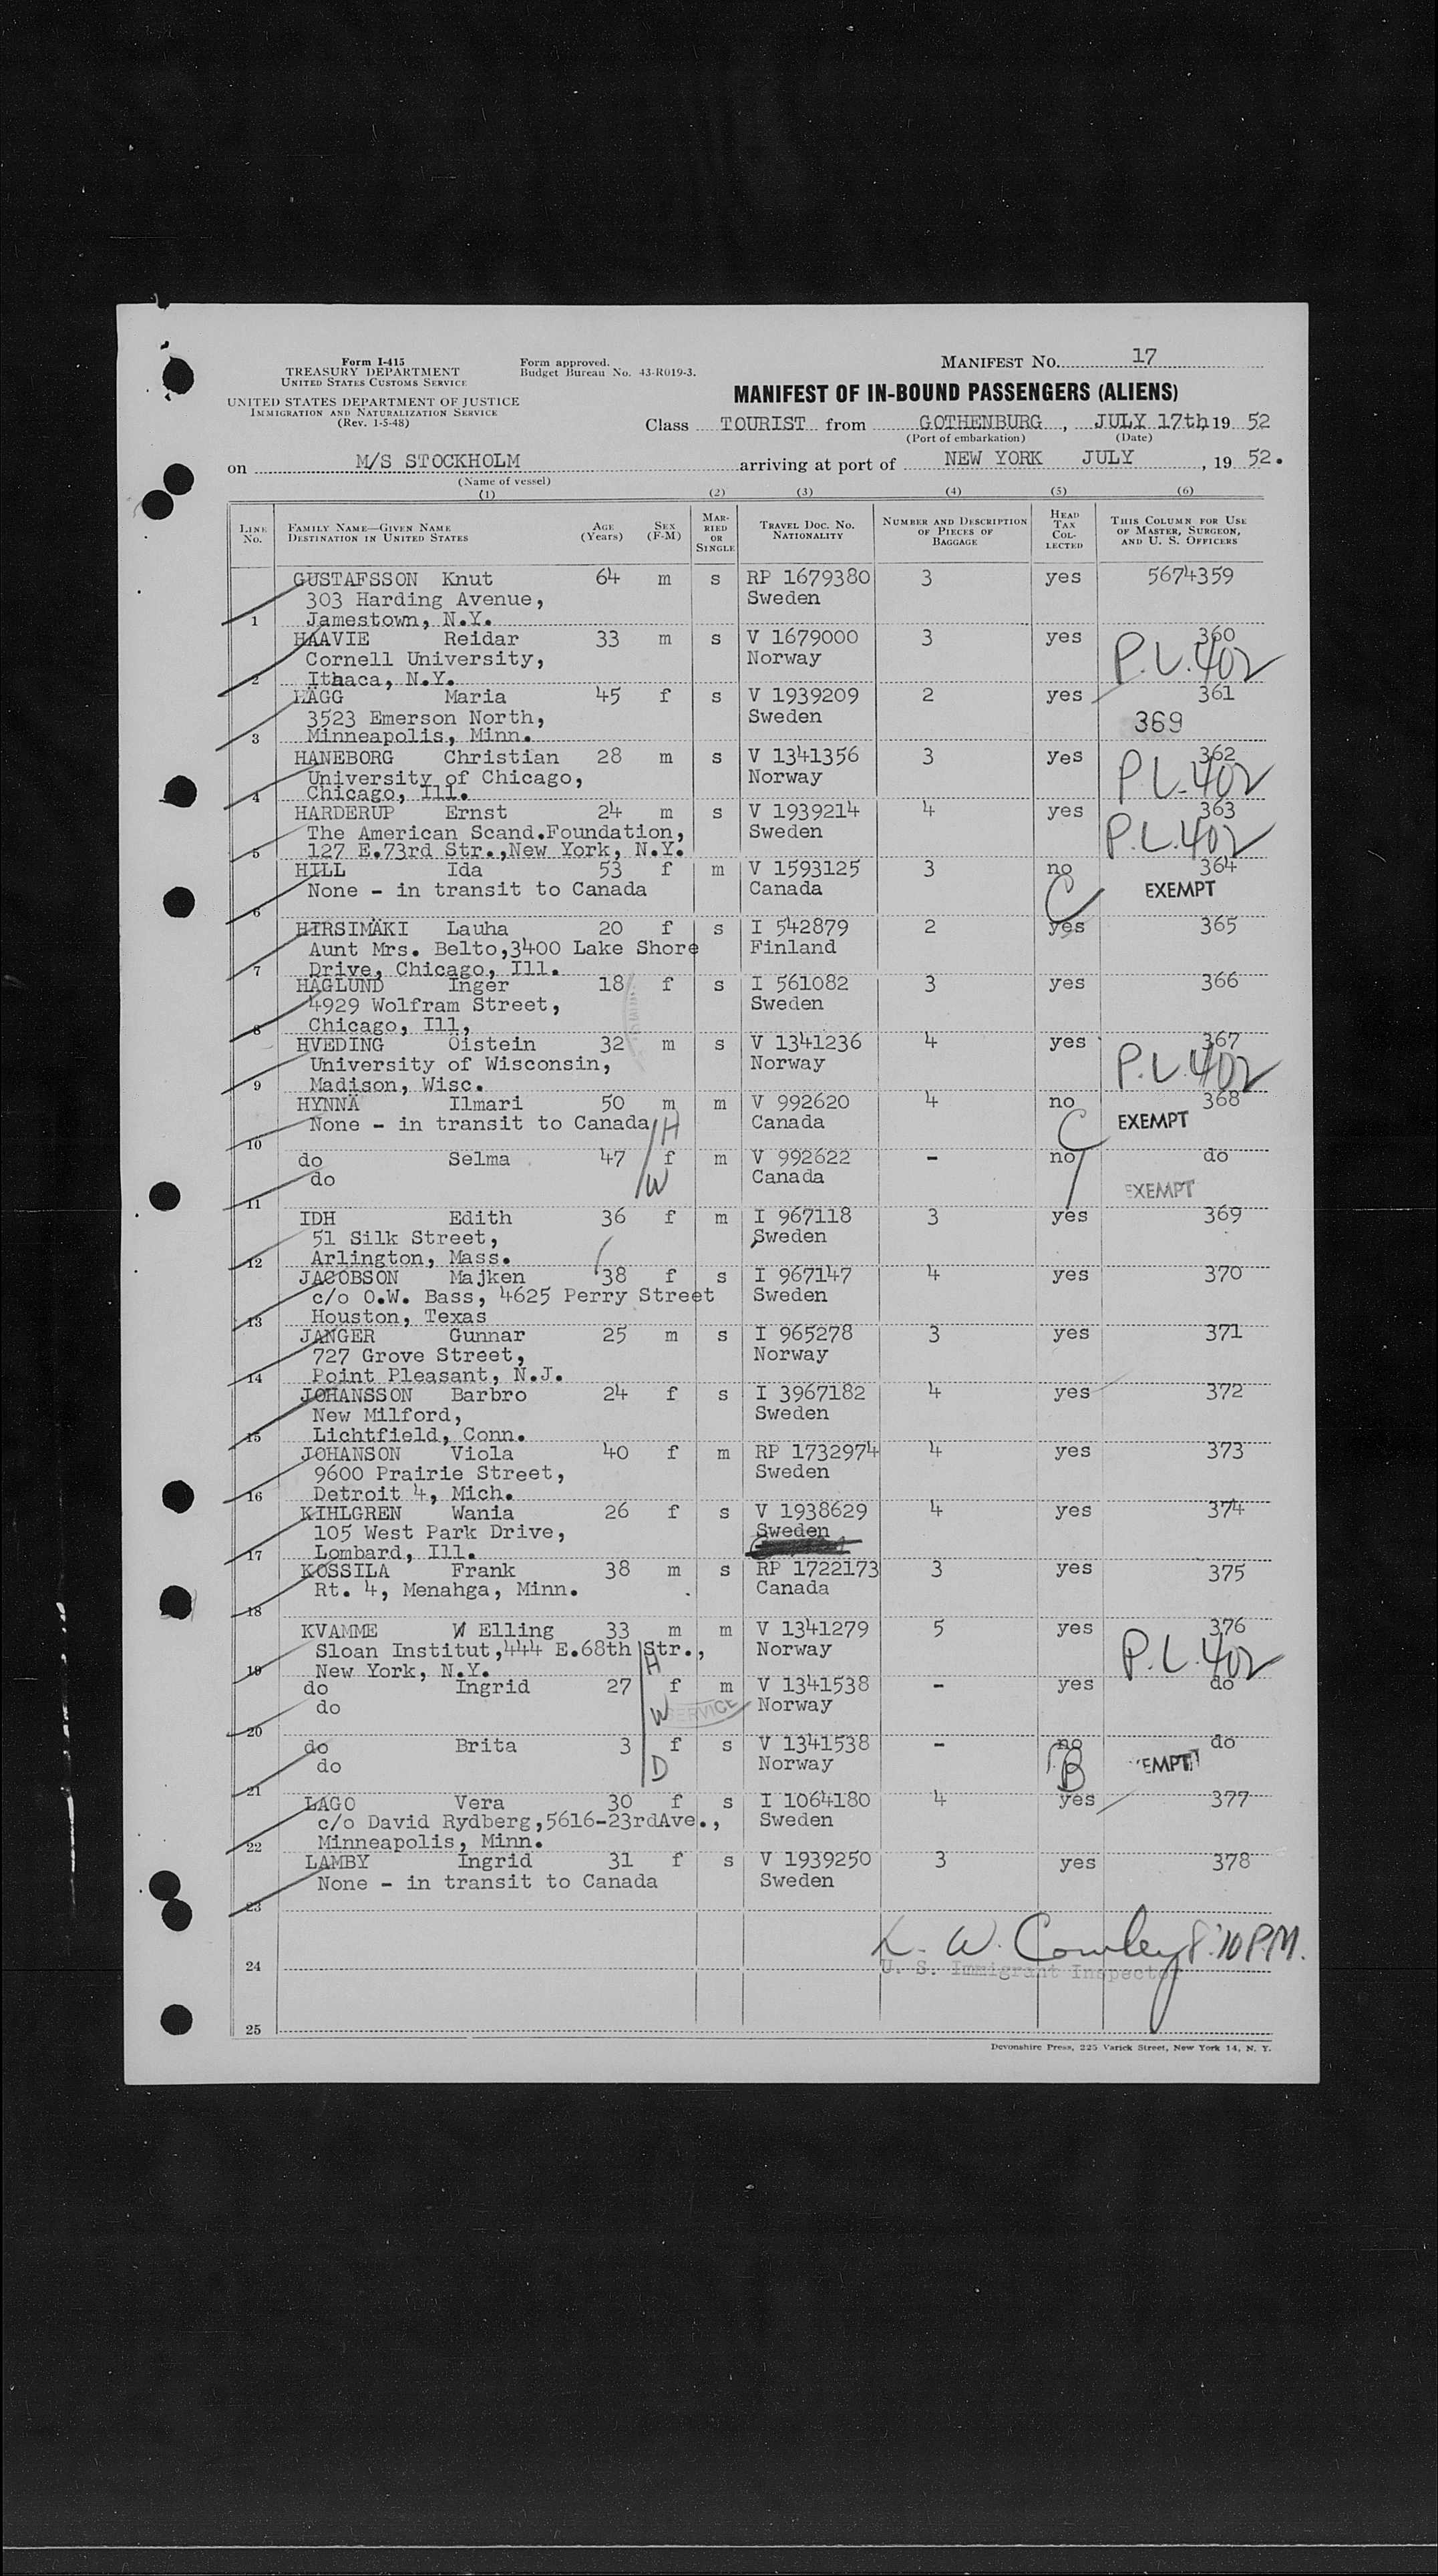 Form I-415
TREASURY DEPARTMENT
UNITED STATES CUSTOMS SERVICE
UNITED STATES DEPARTMENT OF JUSTICE
IMMIGRATION AND NATURALIZATION SERVICE
(Rev. 1-5-48)
Form approved.
Budget Bureau No. 43-R019-3.
MANIFEST NO. 17
MANIFEST OF IN-BOUND PASSENGERS (ALIENS)
Class TOURIST from GOTHENBURG, JULY 17th, 19 52
(Port of embarkation) (Date)
on M/S STOCKHOLM arriving at port of NEW YORK JULY, 19 52.
(Name of vessel)
(1) (2) (3) (4) (5) (6)
LINE NO. FAMILY NAME—GIVEN NAME DESTINATION IN UNITED STATES AGE (Years) SEX (F-M) MARRIED OR SINGLE TRAVEL DOC. NO. NATIONALITY NUMBER AND DESCRIPTION OF PIECES OF BAGGAGE HEAD TAX COLLECTED THIS COLUMN FOR USE OF MASTER, SURGEON, AND U. S. OFFICERS
GUSTAFSSON Knut 64 m s RP 1679380 3 yes 5674359
303 Harding Avenue, Sweden
1 Jamestown, N.Y.
HAAVIE Reidar 33 m s V 1679000 3 yes 360
Cornell University, Norway P.L.402
2 Ithaca, N.Y.
HÄGG Maria 45 f s V 1939209 2 yes 361
3523 Emerson North, Sweden 369
3 Minneapolis, Minn.
HANEBORG Christian 28 m s V 1341356 3 yes 362
University of Chicago, Norway P.L.402
4 Chicago, Ill.
HARDERUP Ernst 24 m s V 1939214 4 yes 363
The American Scand.Foundation, Sweden P.L.402
5 127 E.73rd Str.,New York, N.Y.
HILL Ida 53 f m V 1593125 3 no 364
None - in transit to Canada Canada C EXEMPT
6
HIRSIMÄKI Lauha 20 f s I 542879 2 yes 365
Aunt Mrs. Belto,3400 Lake Shore Finland
7 Drive, Chicago, Ill.
HÄGLUND Inger 18 f s I 561082 3 yes 366
4929 Wolfram Street, Sweden
8 Chicago, Ill,
HVEDING Öistein 32 m s V 1341236 4 yes 367
University of Wisconsin, Norway P.L.402
9 Madison, Wisc.
HYNNÄ Ilmari 50 m m V 992620 4 no 368
None - in transit to Canada H Canada C EXEMPT
10
do Selma 47 f m V 992622 - no do
do W Canada EXEMPT
11
IDH Edith 36 f m I 967118 3 yes 369
51 Silk Street, Sweden
12 Arlington, Mass.
JACOBSON Majken 38 f s I 967147 4 yes 370
c/o O.W. Bass, 4625 Perry Street Sweden
13 Houston, Texas
JANGER Gunnar 25 m s I 965278 3 yes 371
727 Grove Street, Norway
14 Point Pleasant, N.J.
JOHANSSON Barbro 24 f s I 3967182 4 yes 372
New Milford, Sweden
15 Lichtfield, Conn.
JOHANSON Viola 40 f m RP 1732974 4 yes 373
9600 Prairie Street, Sweden
16 Detroit 4, Mich.
KIHLGREN Wania 26 f s V 1938629 4 yes 374
105 West Park Drive, Sweden
17 Lombard, Ill.
KOSSILA Frank 38 m s RP 1722173 3 yes 375
Rt. 4, Menahga, Minn. Canada
18
KVAMME W Elling 33 m m V 1341279 5 yes 376
Sloan Institut,444 E.68th Str., Norway P.L.402
19 New York, N.Y. H
do Ingrid 27 f m V 1341538 - yes do
do W SERVICE Norway
20
do Brita 3 f s V 1341538 - no do
do D Norway B EMPT
21
LAGO Vera 30 f s I 1064180 4 yes 377
c/o David Rydberg,5616-23rdAve., Sweden
22 Minneapolis, Minn.
LAMBY Ingrid 31 f s V 1939250 3 yes 378
None - in transit to Canada Sweden
23
L. W. Cowley 8:10 P.M.
24 U. S. Immigrant Inspector
25
Devonshire Press, 225 Varick Street, New York 14, N. Y.